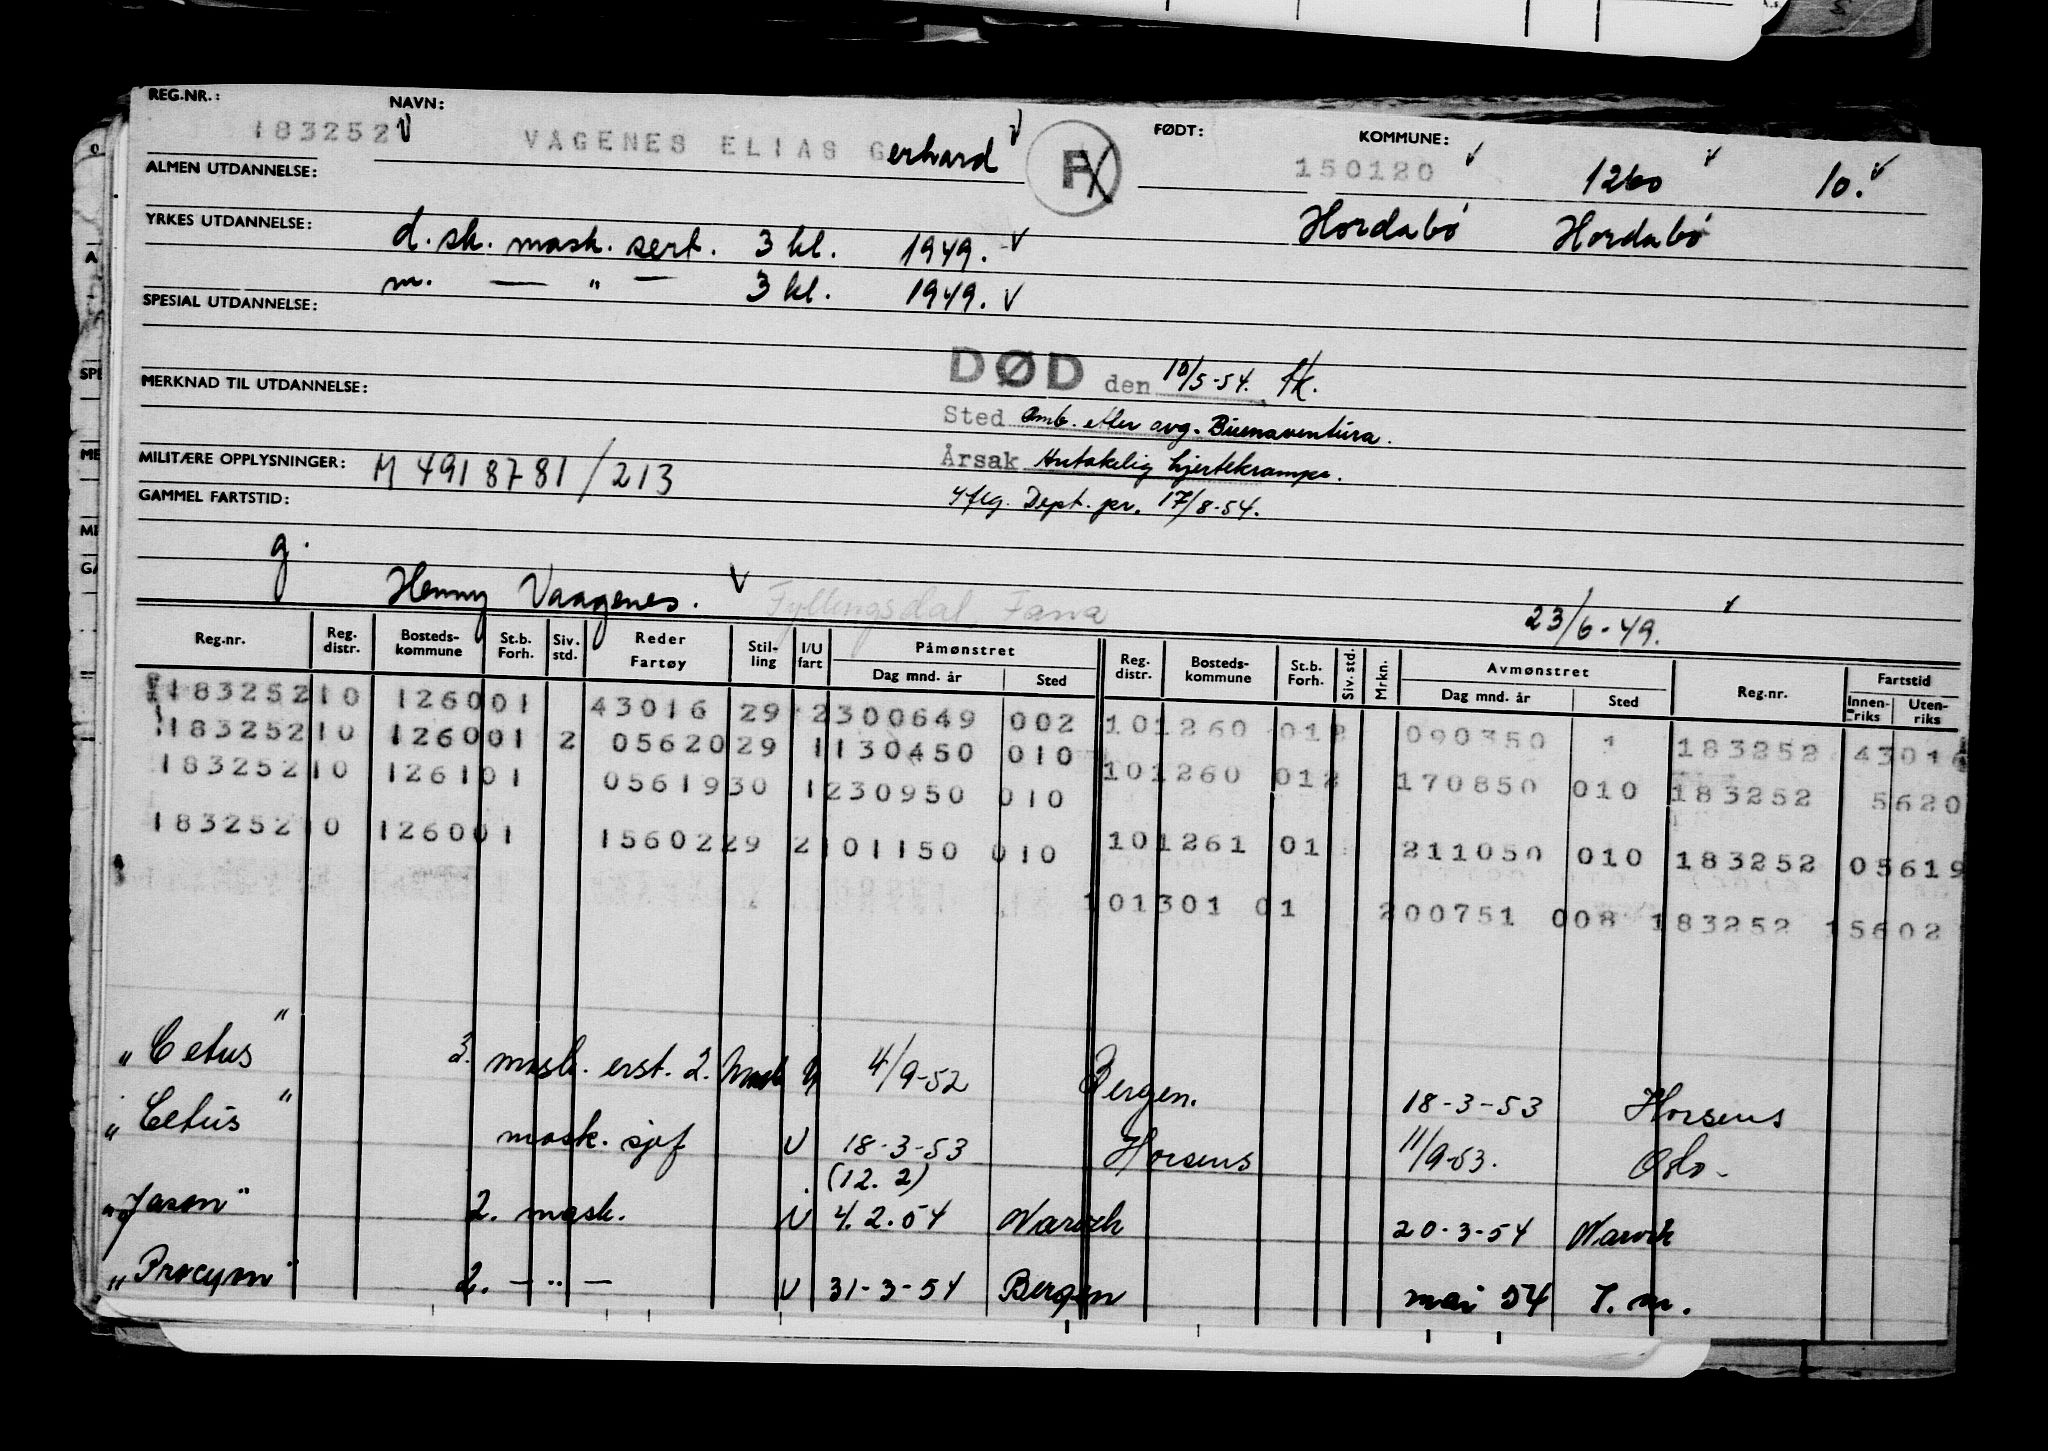 REG.NR.: NAVN: FØDT: KOMMUNE:
183252 VAGENES ELIAS Gerhard 150120 1260 10.
ALMEN UTDANNELSE: Hordabø Hordabø
YRKES UTDANNELSE: d. sk. mask. sert. 3 kl. 1949.
m. — " — 3 kl. 1949.
SPESIAL UTDANNELSE:
DØD den 10/5-54. fk.
MERKNAD TIL UTDANNELSE:
Sted Omb. etter avg. Buenaventura.
MILITÆRE OPPLYSNINGER: M 4918781/213
Årsak Antakelig hjertekrampe.
GAMMEL FARTSTID:
Iflg. Dept. pr. 17/8-54.
g.
Henny Vaagenes. Fyllingsdal Fana 23/6-49.
Reg.nr. Reg. distr. Bosteds-kommune St.b. Forh. Siv. std. Reder Fartøy Stil-ling I/U fart Påmønstret Dag mnd. år Sted Reg. distr. Bosteds-kommune St.b. Forh. Siv. std. Mrkn. Avmønstret Dag mnd. år Sted Reg.nr. Fartstid Innen-riks Uten-riks
183252 10 1260 01 43016 29 2 300649 002 10 1260 01 2 090350 183252 43016
183252 10 1260 01 2 05620 29 1 130450 010 10 1260 01 2 170850 010 183252 5620
183252 10 1261 01 05619 30 1 230950 010 10 1261 01 211050 010 183252 05619
183252 10 1260 01 15602 29 2 101150 010 10 1301 01 200751 008 183252 15602
"Cetus" 3. mask. erst. 2. mask U 4/9-52 Bergen. 18-3-53 Horsens
"Cetus" mask. sjef U 18-3-53 Horsens 11/9-53. Oslo
(12.2)
"Jason" 2. mask. U 4.2.54 Narvik 20-3-54 Narvik
"Procyon" 2. — " — U 31-3-54 Bergen mai 54 T. m.